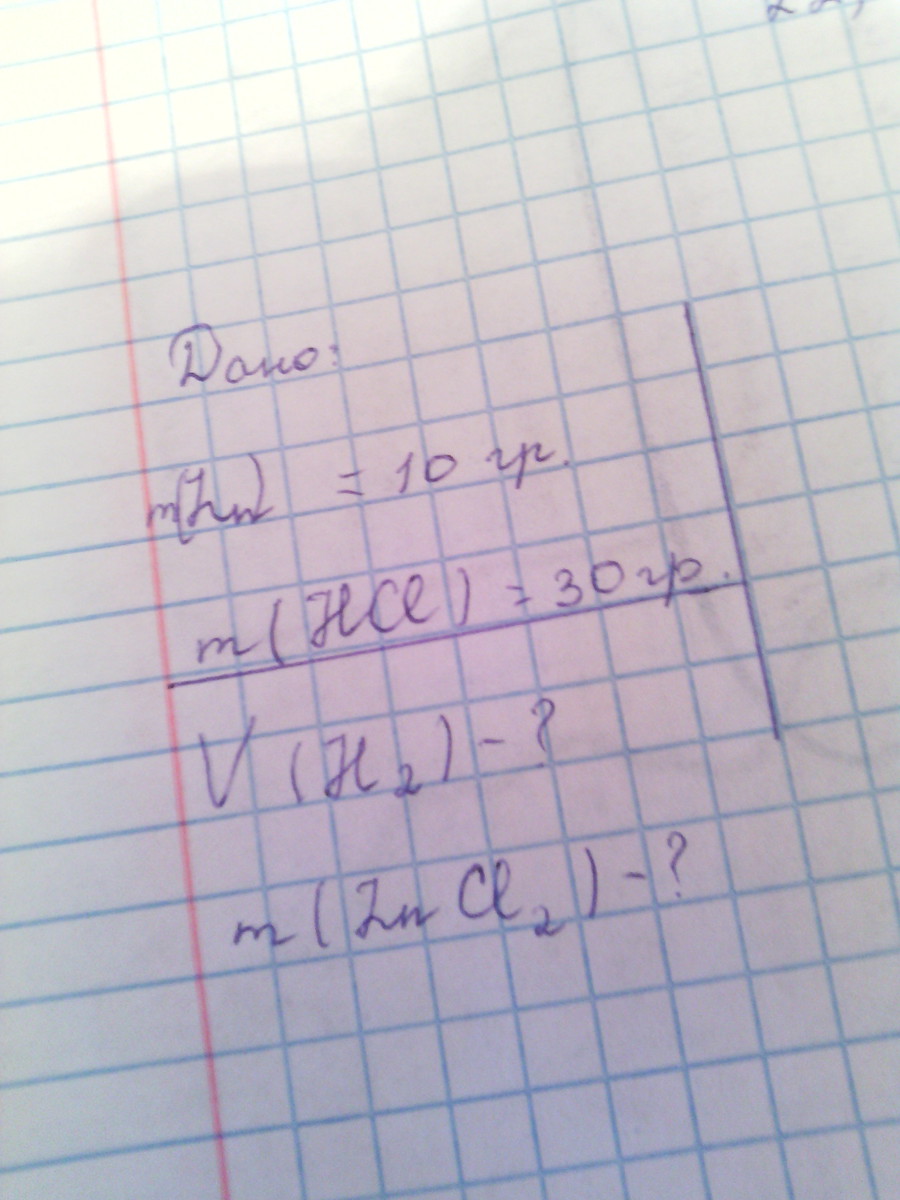 Дано:
m(Zn) = 10 гр.
m(HCl) = 30 гр.
V(H₂) - ?
m(ZnCl₂) - ?